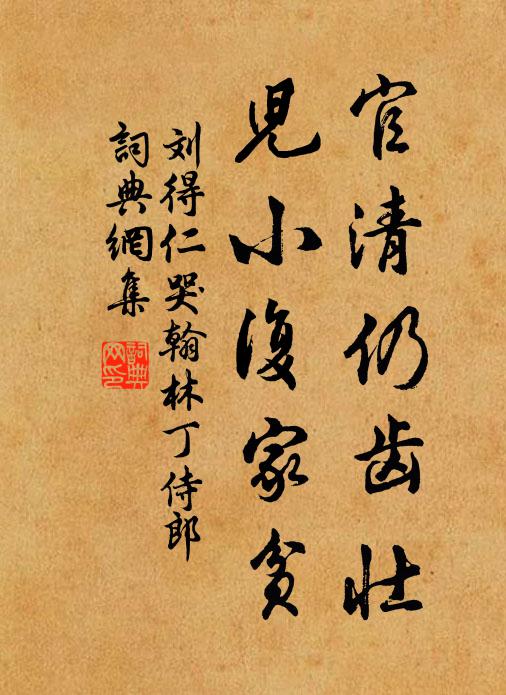 官清仍齿壮
児小復家貧
刘得仁哭翰林丁侍郎
詞典網集
詞典网印